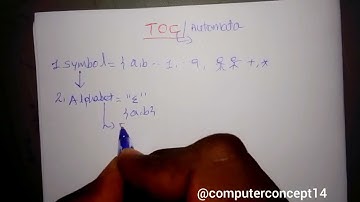 TOC/Automata
1. symbol = { a.b .. 1. 9, +,*
2. Alphabet = "ε"
{a.b}
@computerconcept14